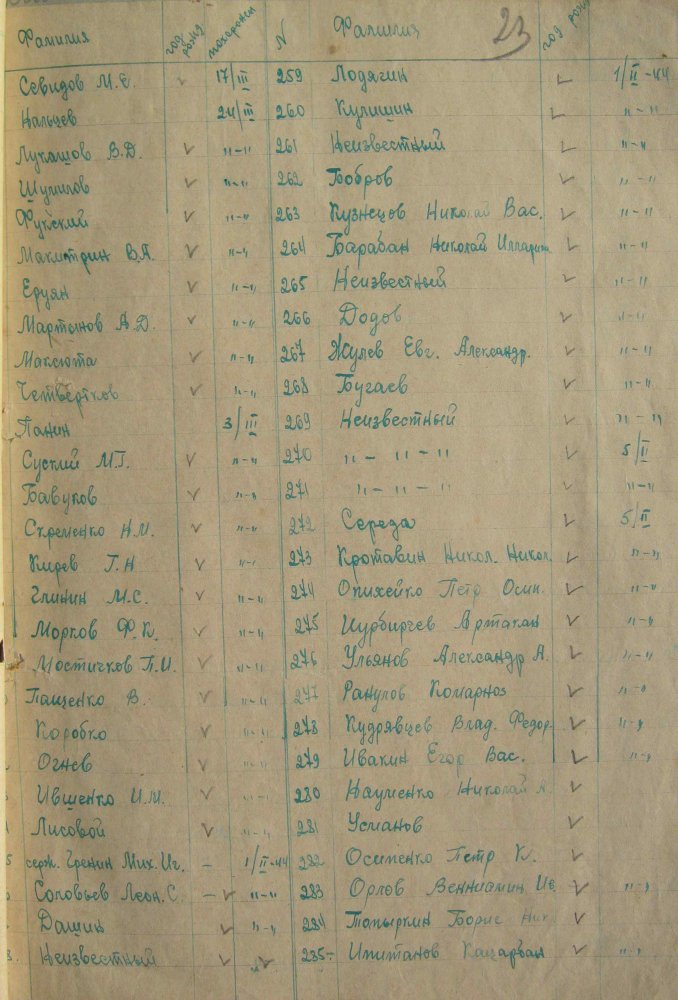 Фамилия год рожд похоронен N Фамилия 23 год рожд
Севидов М.Е. 17/III 259 Лодягин 1/II-44
Нальцев 24/III 260 Кулишин "-"
Лукашов В.Д. "-" 261 Неизвестный "-"
Шумилов "-" 262 Бобров "-"
Фукский "-" 263 Кузнецов Николай Вас. "-"
В.А. "-" 264 Барабан Николай "-"
Еруян "-" 265 Неизвестный "-"
Мартынов А.Д. "-" 266 Додов "-"
Максюта "-" 267 Жулев Евг. Александр. "-"
Четвертков "-" 268 Бугаев "-"
Панин 3/III 269 Неизвестный "-"
Суский М.Г. "-" 270 "-"-" 5/II
Бавуков "-" 271 "-"-" "-"
Скременко Н.М. "-" 272 Середа 5/II
Кирев Г.Н "-" 273 Кротавин Никол. Никол. "-"
Глинин М.С. "-" 274 Опихейко Петр Осип. "-"
Морков Ф.К. "-" 275 "-"
Мостичков П.И. "-" 276 Ульянов Александр А. "-"
Пащенко В. "-" 277 Ранулов "-"
Коробко "-" 278 Кудрявцев Влад. Федор. "-"
Огнев "-" 279 Ивакин Егор Вас. "-"
Ившенко И.М. "-" 280 Науменко Николай А.
Лисовой "-" 281 Усманов
серж. Гренин Мих. Иг. - 1/II-44 282 Осипенко Петр К.
Соловьев Леон. С. - "-" 283 Орлов Вениамин "-"
Дашин "-" 284 Борис Ник.
Неизвестный " 285- "-"